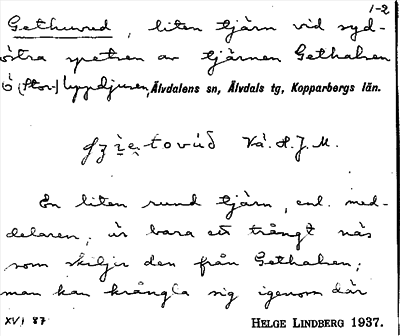 1-2
Gethuvud, liten tjärn vid syd-
östra spetsen av tjärnen Gethalsen
ö (Stor-) Uppdjusen, Älvdalens sn, Älvdals tg, Kopparbergs län.
Vå. H. J. M.
En liten rund tjärn, enl. med-
delaren; är bara ett trångt näs
som skiljer den från Gethalsen;
man kan krångla sig igenom där
XVI 87
HELGE LINDBERG 1937.